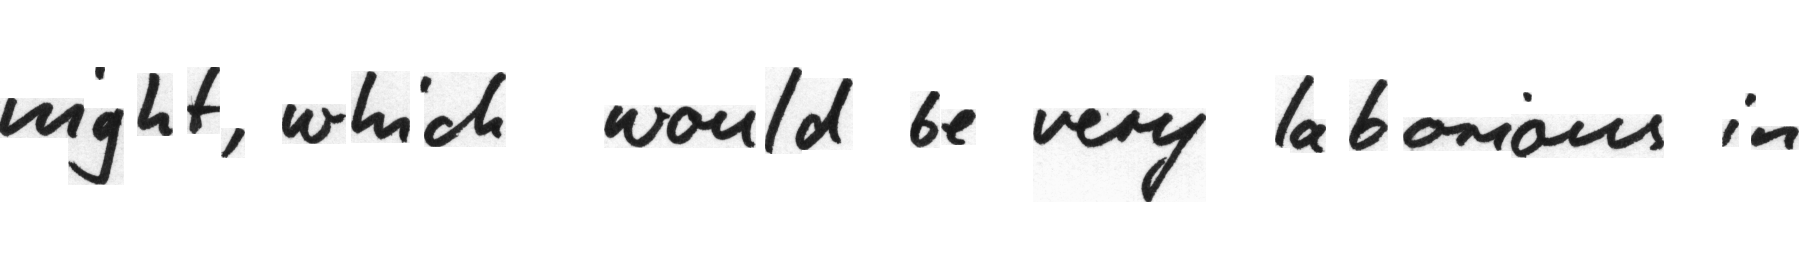 night, which would be very laborious in